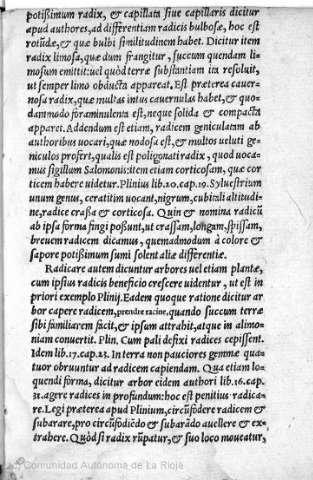 potißimum radix, & capillata siue capillaris dicitur
apud authores, ad differentiam radicis bulbosæ, hoc est
rotũdæ, & quæ bulbi similitudinem habet. Dicitur item
radix limosa, quæ dum frangitur, succum quendam li-
mosum emittit: uel quòd terræ substantiam ita resoluit,
ut semper limo obducta appareat. Est præterea cauer-
nosa radix, quæ multas intus cauernulas habet, & quo-
dammodo foraminulenta est, neque solida & compacta
apparet. Addendum est etiam, radicem geniculatam ab
authoribus uocari, quæ nodosa est, & multos ueluti ge-
niculos profert, qualis est poligonati radix, quod uoca-
mus sigillum Salomonis: item etiam corticosam, quæ cor
ticem habere uidetur. Plinius lib. 20. cap. 19. Syluestrium
unum genus, ceratitim uocant, nigrum, cubitali altitudi-
ne, radice crassa & corticosa. Quin & nomina radicũ
ab ipsa forma fingi poßunt, ut crassam, longam, spissam,
breuem radicem dicamus, quemadmodum à colore &
sapore potißimum sumi solent aliæ differentiæ.
Radicare autem dicuntur arbores uel etiam plantæ,
cum ipsius radicis beneficio crescere uidentur, ut est in
priori exemplo Plinij. Eadem quoque ratione dicitur ar
bor capere radicem, prendre racine. quando succum terræ
sibi familiarem facit, & ipsum attrahit, atque in alimo-
niam conuertit. Plin. Cum pali defixi radices cepissent.
Idem lib. 17. cap. 23. In terra non pauciores gemmæ qua-
tuor obruuntur ad radicem capiendam. Qua etiam lo-
quendi forma, dicitur arbor eidem authori lib. 16. cap.
31. agere radices in profundum: hoc est penitius radica-
re. Legi præterea apud Plinium, circũfodere radicem &
subarare, pro circũfodiẽdo & subarãdo auellere & ex-
trahere. Quòd si radix rũpatur, & suo loco moueatur,
Comunidad Autónoma de La Rioja